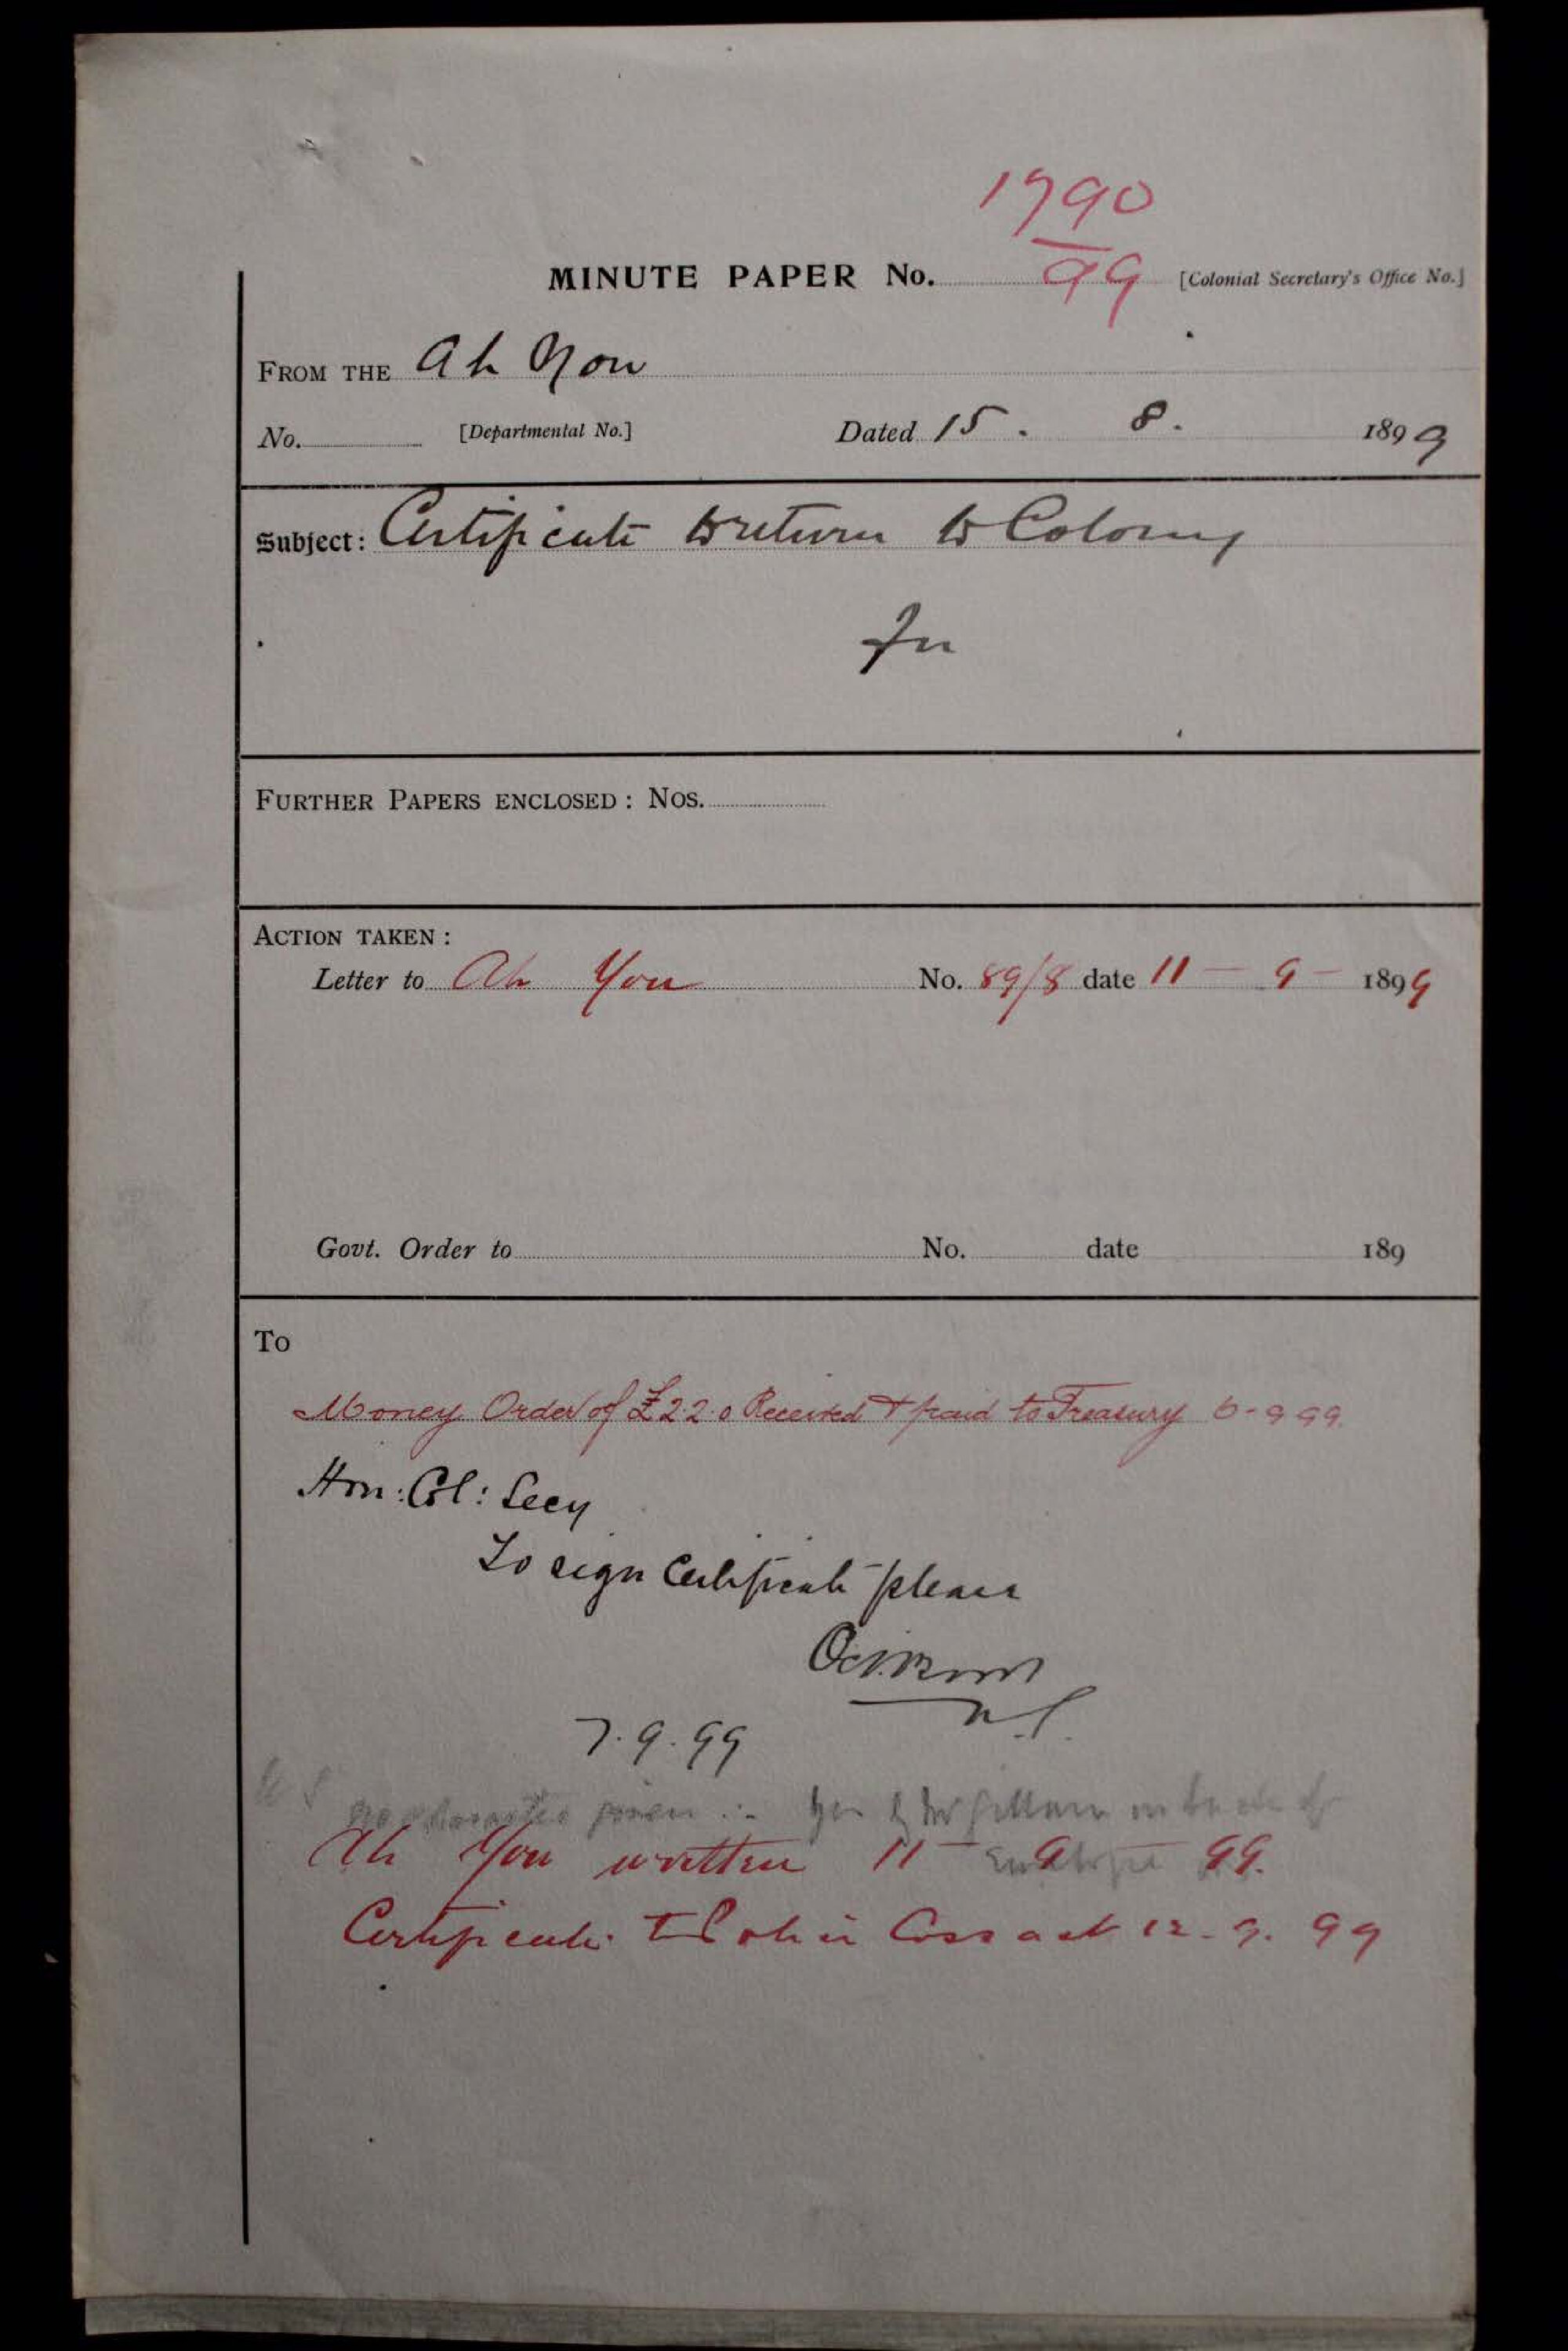 1790
99
MINUTE PAPER No. [Colonial Secretary's Office No.]
FROM THE Ah You
No. [Departmental No.] Dated 15. 8. 1899
Subject: Certificate to return to Colony
for
FURTHER PAPERS ENCLOSED: Nos.
ACTION TAKEN:
Letter to Ah You No. 89/8 date 11 - 9 - 1899
Govt. Order to No. date 189
To
Money Order of £2 2. 0 Received & paid to Treasury 6-9 99.
Hon: Col: Secy
To sign Certificate please
7.9.99
U S
No character given :- Yes by Mr on back of
Ah You written 11 - 9 - 99.
Certificate to Police Cossack 12. 9. 99